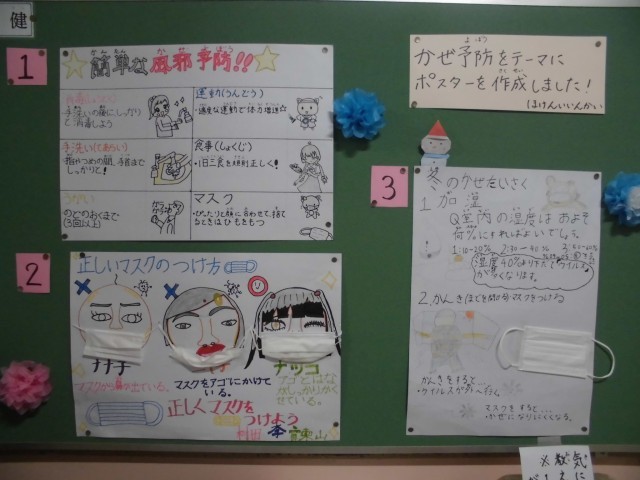 健
1
簡単な風邪予防!!
消毒(しょうどく)
手洗いの後にしっかり
と消毒しよう
運動(うんどう)
・適度な運動で体力増進☆
手洗い(てあらい)
指やつめの間、手首まで
しっかりと!
食事(しょくじ)
・1日三食を規則正しく!
うがい
のどのおくまで
(3回以上)
マスク
・ぴったりと顔に合わせ、捨て
るときはひもをもつ
かぜ予防をテーマに
ポスターを作成しました!
(ほけんいいんかい
2
正しいマスクのつけ方
ナナ子
マスクから鼻が出ている。
マスクをアゴにかけて
いる。
ナツコ
アゴとはな
がしっかりかく
せている。
正しくマスクを
つけよう
3
冬のかぜたいさく
1.加湿
Q室内の湿度はおよそ
何%にすればよいでしょう。
湿度
ウイルス
なくなります。
2.かんきほどを
マスクをつける
かんきをすると…
・ウイルスが外へ行く。
マスクをすると…
・かぜになりにくくなる。
※教
気
に